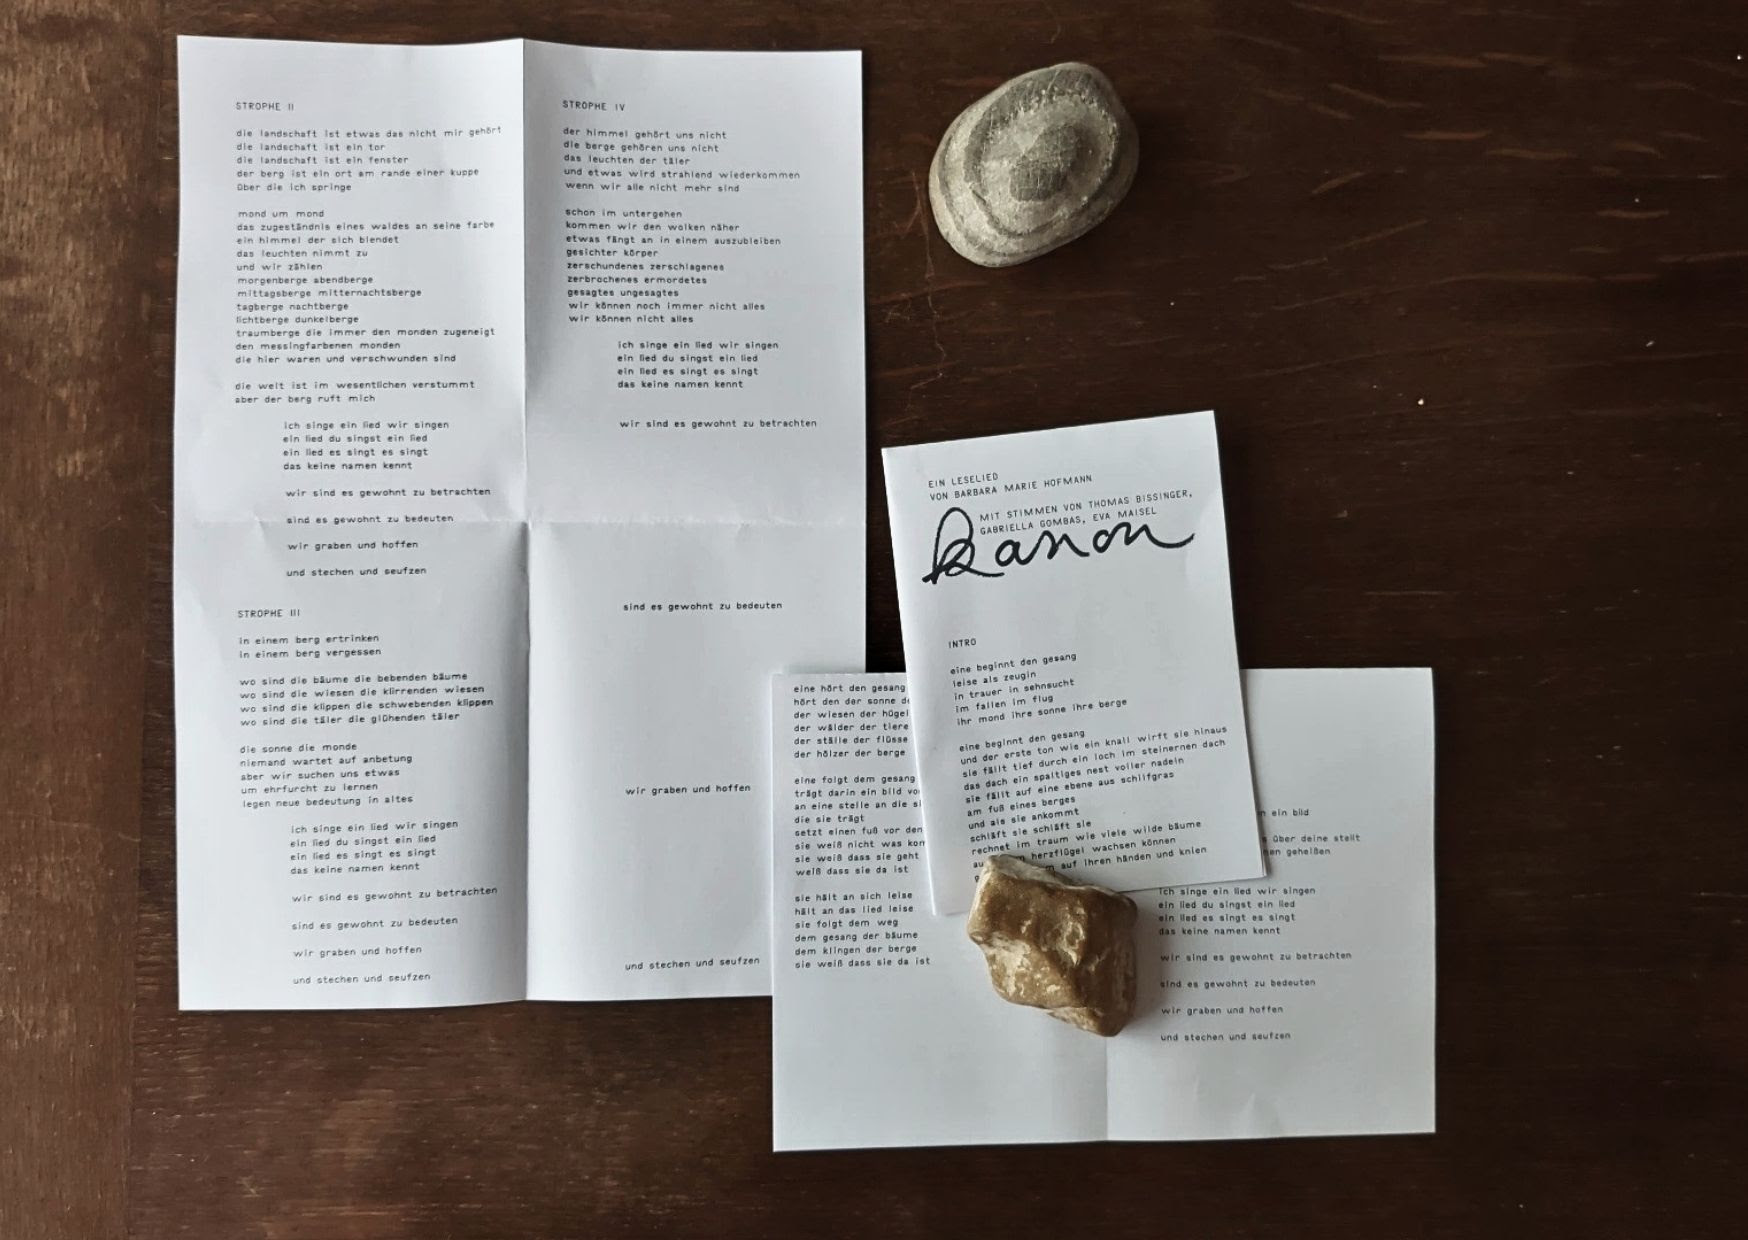 STROPHE II
die landschaft ist etwas das nicht mir gehört
die landschaft ist ein tor
die landschaft ist ein fenster
der berg ist ein ort am rande einer kuppe
über die ich springe
mond um mond
das zugeständnis eines waldes an seine farbe
ein himmel der sich blendet
das leuchten nimmt zu
und wir zählen
morgenberge abendberge
mittagsberge mitternachtsberge
tagberge nachtberge
lichtberge dunkelberge
traumberge die immer den monden zugeneigt
den messingfarbenen monden
die hier waren und verschwunden sind
die welt ist im wesentlichen verstummt
aber der berg ruft mich
ich singe ein lied wir singen
ein lied du singst ein lied
ein lied es singt es singt
das keine namen kennt
wir sind es gewohnt zu betrachten
sind es gewohnt zu bedeuten
wir graben und hoffen
und stechen und seufzen
STROPHE III
in einem berg ertrinken
in einem berg vergessen
wo sind die bäume die bebenden bäume
wo sind die wiesen die klirrenden wiesen
wo sind die klippen die schwebenden klippen
wo sind die täler die glühenden täler
die sonne die monde
niemand wartet auf anbetung
aber wir suchen uns etwas
um ehrfurcht zu lernen
legen neue bedeutung in altes
ich singe ein lied wir singen
ein lied du singst ein lied
ein lied es singt es singt
das keine namen kennt
wir sind es gewohnt zu betrachten
sind es gewohnt zu bedeuten
wir graben und hoffen
und stechen und seufzen
STROPHE IV
der himmel gehört uns nicht
die berge gehören uns nicht
das leuchten der täler
und etwas wird strahlend wiederkommen
wenn wir alle nicht mehr sind
schon im untergehen
kommen wir den wolken näher
etwas fängt an in einem auszubleiben
gesichter körper
zerschundenes zerschlagenes
zerbrochenes ermordetes
gesagtes ungesagtes
wir können noch immer nicht alles
wir können nicht alles
ich singe ein lied wir singen
ein lied du singst ein lied
ein lied es singt es singt
das keine namen kennt
wir sind es gewohnt zu betrachten
sind es gewohnt zu bedeuten
wir graben und hoffen
und stechen und seufzen
EIN LESELIED
VON BARBARA MARIE HOFMANN
MIT STIMMEN VON THOMAS BISSINGER,
GABRIELLA GOMBAS, EVA MAISEL
Kanon
INTRO
eine beginnt den gesang
leise als zeugin
in trauer in sehnsucht
im fallen im flug
ihr mond ihre sonne ihre berge
eine beginnt den gesang
und der erste ton wie ein knall wirft sie hinaus
sie fällt tief durch ein loch im steinernen dach
das dach ein spaltiges nest voller nadeln
sie fällt auf eine ebene aus schilfgras
am fuß eines berges
und als sie ankommt
schläft sie schläft sie
rechnet im traum wie viele wilde bäume
herzflügel wachsen können
auf ihren händen und knien
eine hört den gesang
hört den der sonne
der wiesen der hügel
der wälder der tiere
der ställe der flüsse
der hölzer der berge
eine folgt dem gesang
trägt darin ein bild
an eine stelle an die
die sie trägt
setzt einen fuß vor den
sie weiß nicht was
sie weiß dass sie geht
weiß dass sie da ist
sie hält an sich leise
hält an das lied leise
sie folgt dem weg
dem gesang der bäume
dem klingen der berge
sie weiß dass sie da ist
ein bild
über deine stellt
geheißen
ich singe ein lied wir singen
ein lied du singst ein lied
ein lied es singt es singt
das keine namen kennt
wir sind es gewohnt zu betrachten
sind es gewohnt zu bedeuten
wir graben und hoffen
und stechen und seufzen